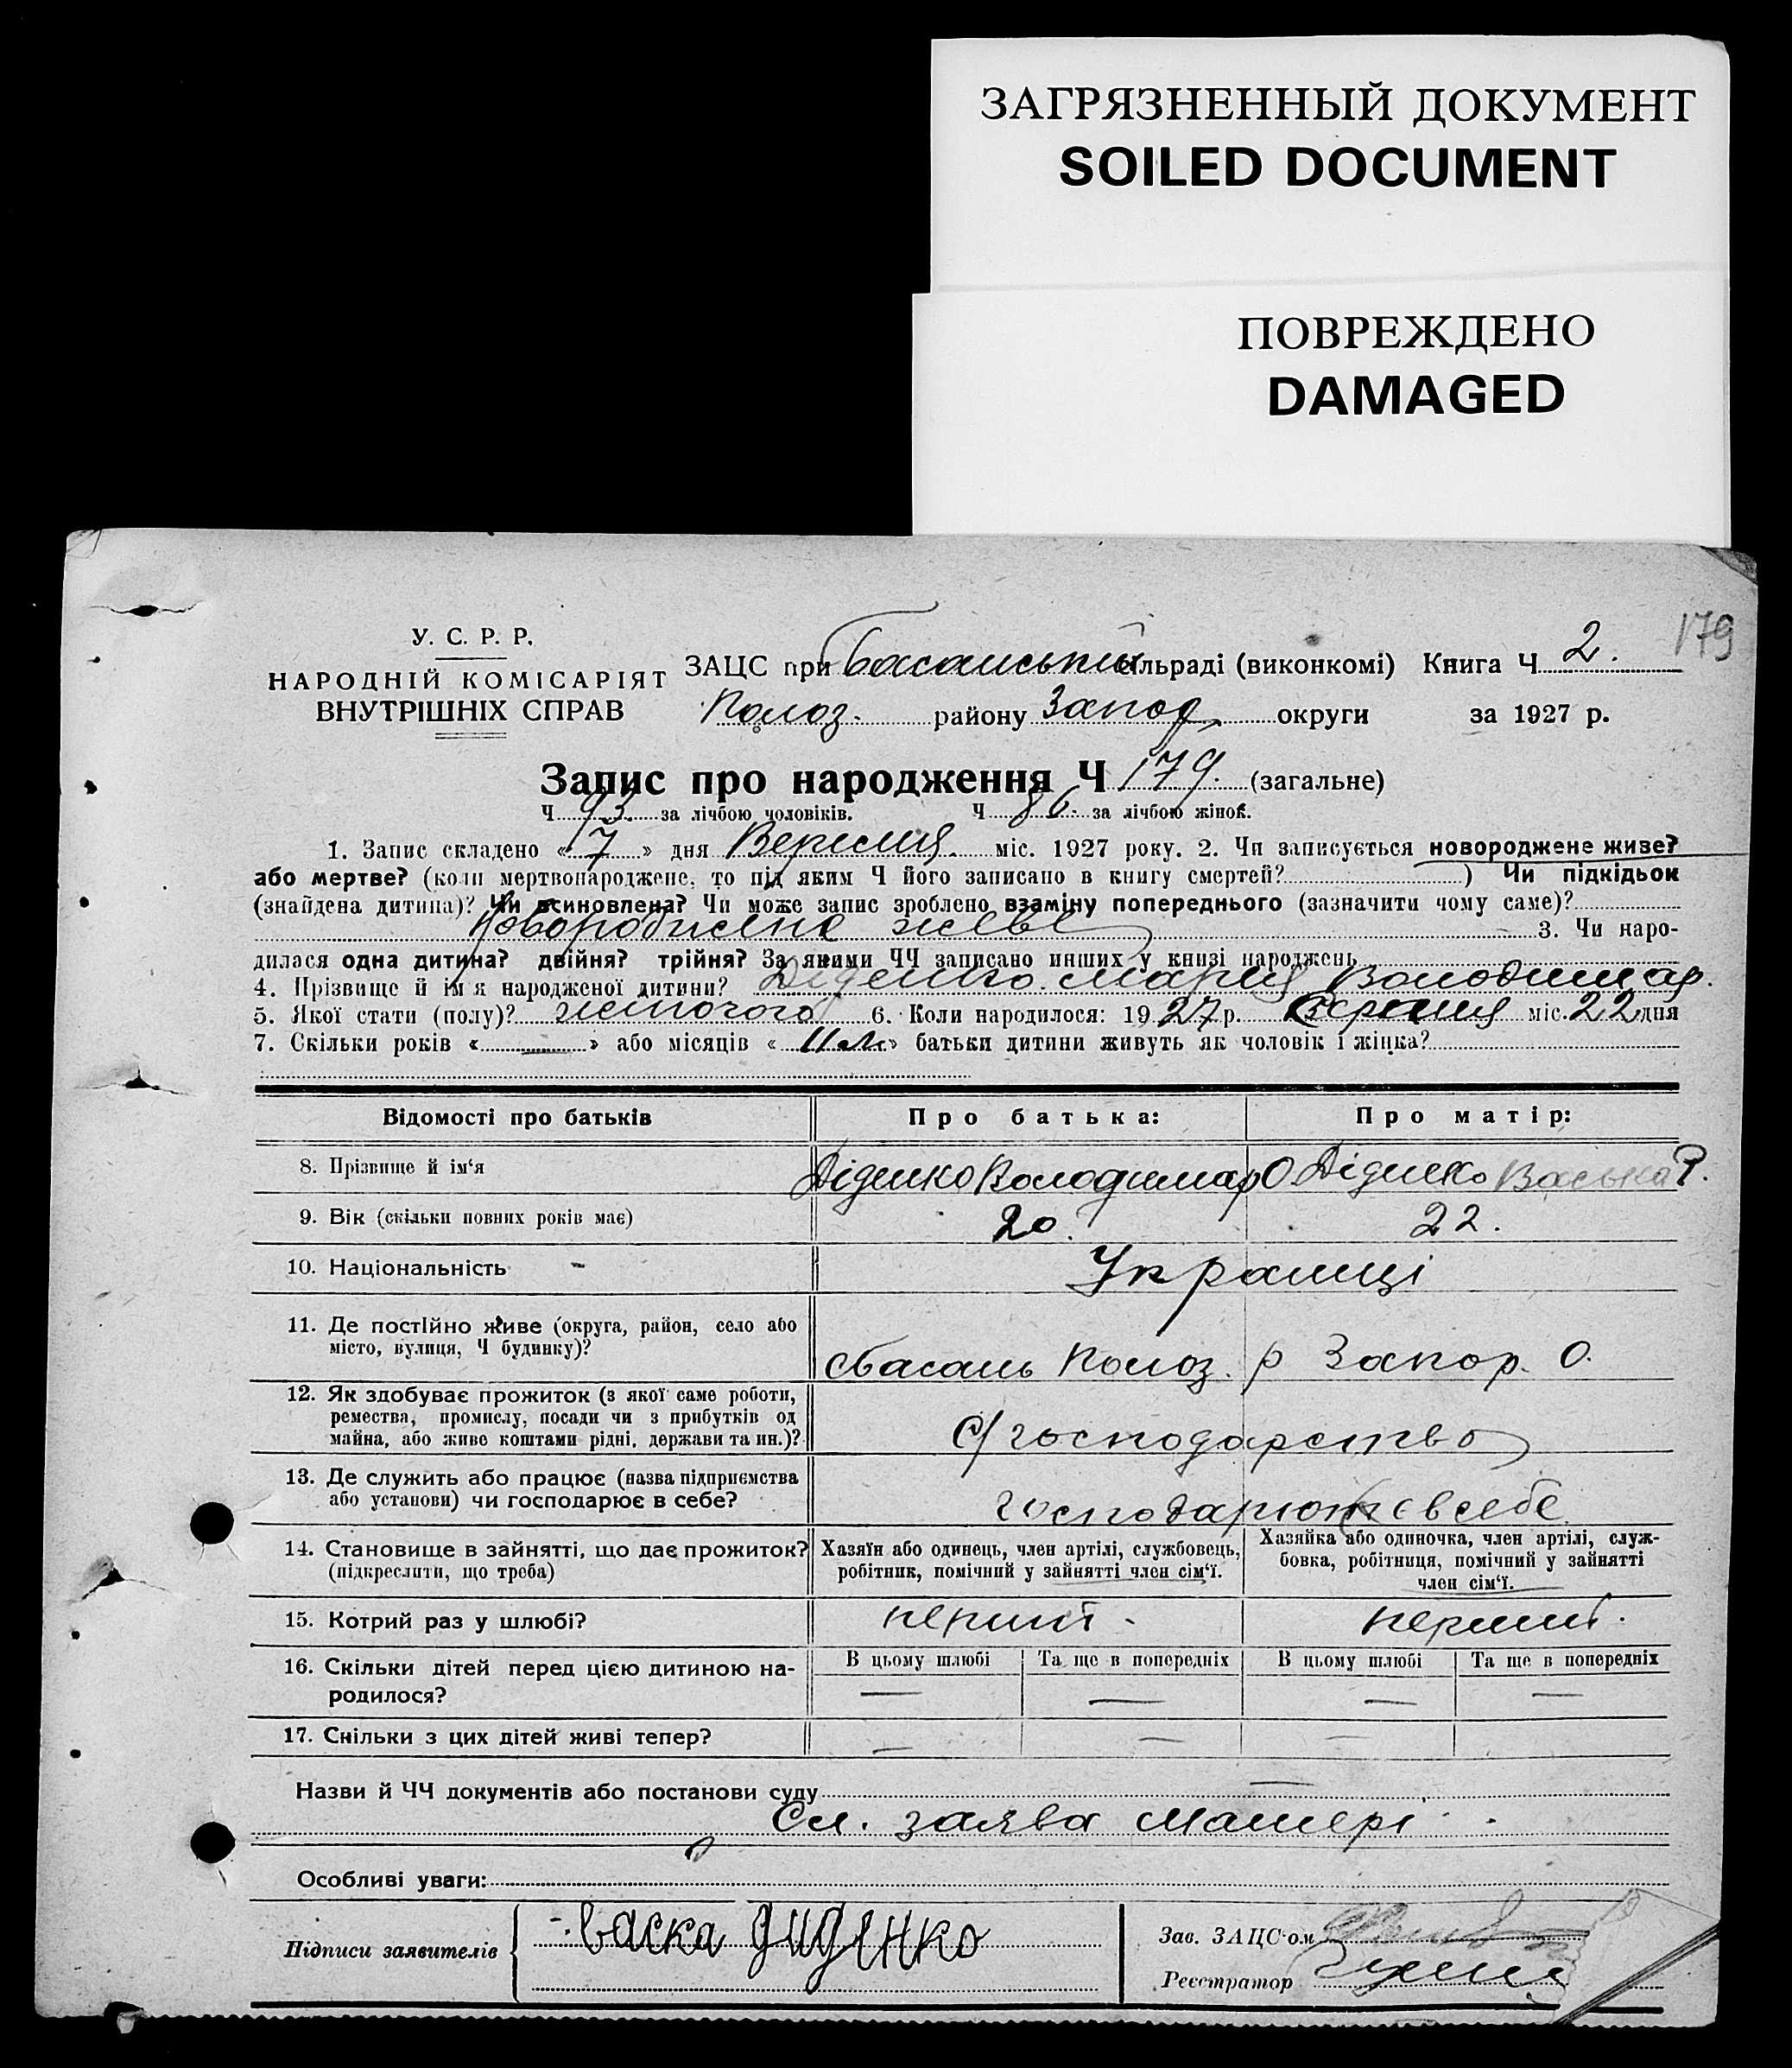 ЗАГРЯЗНЕННЫЙ ДОКУМЕНТ
SOILED DOCUMENT
ПОВРЕЖДЕНО
DAMAGED
179
У. С. Р. Р.
НАРОДНІЙ КОМІСАРІЯТ
ВНУТРІШНІХ СПРАВ
ЗАЦС при Басанській сільраді (виконкомі) Книга Ч 2.
Полоз. району Запор. округи за 1927 р.
Запис про народження Ч 179. (загальне)
Ч 93 за лічбою чоловіків. Ч 86. за лічбою жінок.
1. Запис складено « 17 » дня Вересня міс. 1927 року. 2. Чи записується новороджене живе?
або мертве? (коли мертвонароджене, то під яким Ч його записано в книгу смертей? ) Чи підкідьок
(знайдена дитина)? Чи всиновлена? Чи може запис зроблено взаміну попереднього (зазначити чому саме)?
новороджене живе 3. Чи наро-
дилася одна дитина? двійня? трійня? За якими ЧЧ записано инших у книзі народжень
4. Прізвище й ім'я народженої дитини? Діденко Мария Володимар.
5. Якої стати (полу)? жіночого 6. Коли народилося: 1927 р. міс. 22 дня
7. Скільки років « — » або місяців « 11 м. » батьки дитини живуть як чоловік і жінка?
Відомості про батьків Про батька: Про матір:
8. Прізвище й ім'я Діденко Володимар О Діденко Васька Р.
9. Вік (скільки повних років має) 20. 22.
10. Національність Украінці
11. Де постійно живе (округа, район, село або
місто, вулиця, Ч будинку)? с Басань Полоз. р Запор. О.
12. Як здобуває прожиток (з якої саме роботи,
ремества, промислу, посади чи з прибутків од
майна, або живе коштами рідні, держави та ин.)? с/господарство
13. Де служить або працює (назва підприємства
або установи) чи господарює в себе? господарює в себе
14. Становище в зайнятті, що дає прожиток?
(підкреслити, що треба)
Хазяїн або одинець, член артілі, службовець,
робітник, помічний у зайнятті член сім'ї.
Хазяйка або одиночка, член артілі, служ-
бовка, робітниця, помічний у зайнятті
член сім'ї.
15. Котрий раз у шлюбі? перший - перший.
16. Скільки дітей перед цією дитиною на-
родилося?
В цьому шлюбі Та ще в попередніх В цьому шлюбі Та ще в попередніх
— — — —
17. Скільки з цих дітей живі тепер? — — —
Назви й ЧЧ документів або постанови суду —
Сл. заява матері
Особливі уваги:
Підписи заявителів Васка Диденко
Зав. ЗАЦС'ом
Реєстратор